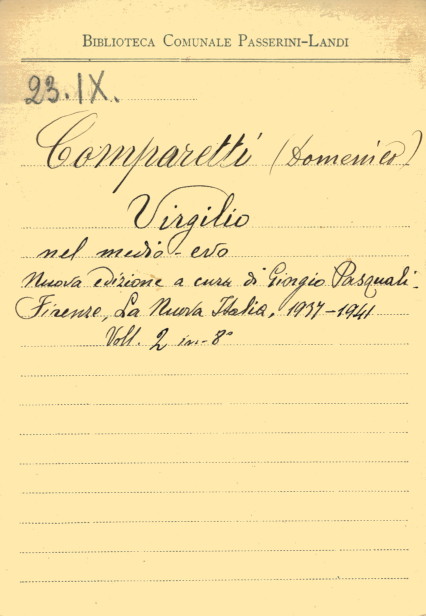 BIBLIOTECA COMUNALE PASSERINI-LANDI
23.IX.
Comparetti (Domenico)
Virgilio
nel medio-evo
Nuova edizione a cura di Giorgio Pasquali.
Firenze, La Nuova Italia, 1937-1941
Voll. 2 in-8°